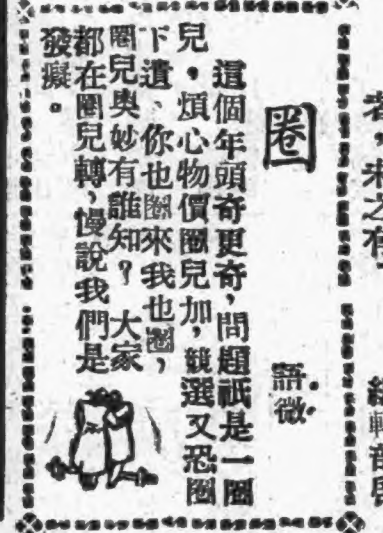 圈
語微
這個年頭奇更奇，問題祇是一圈
兒，煩心物價圈兒加，競選又恐圈
下遺、你也圈來我也圈，
圈兒奥妙有誰知？大家
都在圈兒轉，慢說我們是
發癡。
者，未之有